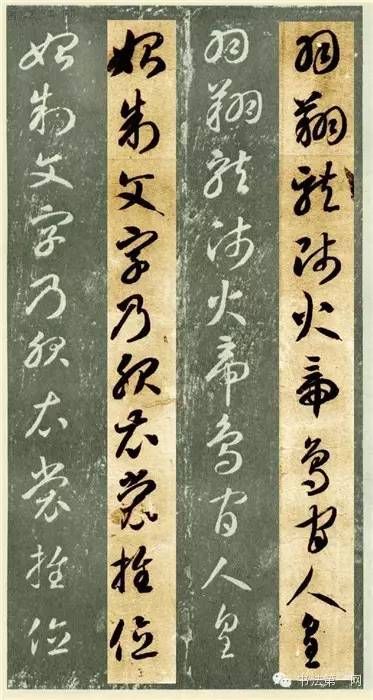 羽翔龍師火帝鳥官人皇
羽翔龍師火帝鳥官人皇
始制文字乃服衣裳推位
始制文字乃服衣裳推位
书法第一网